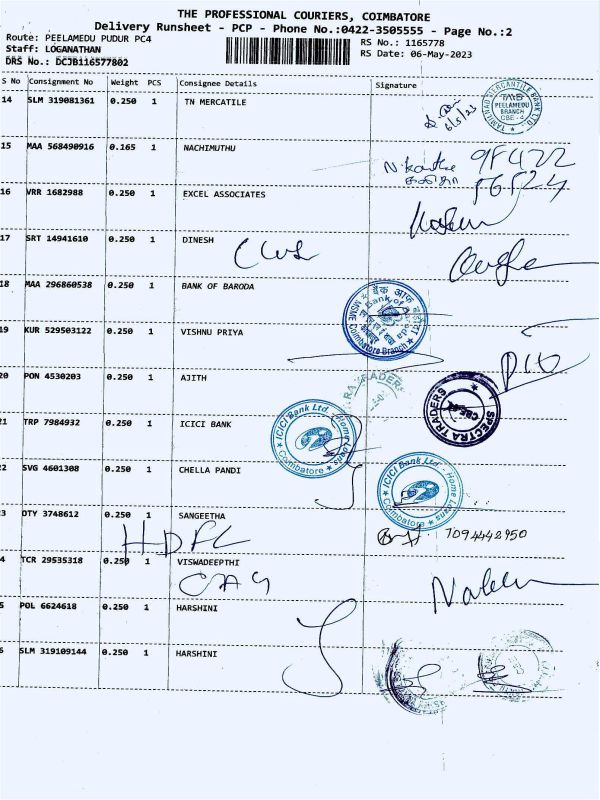 THE PROFESSIONAL COURIERS, COIMBATORE
Delivery Runsheet - PCP - Phone No.:0422-3505555 - Page No.:2
Route: PEELAMEDU PUDUR PC4
RS No.: 1165778
Staff: LOGANATHAN
RS Date: 06-May-2023
DRS No.: DCJB116577802
S No Consignment No Weight PCS Consignee Details Signature
14 SLM 319081361 0.250 1 TN MERCATILE
6/5/23
TAMILNAD MERCANTILE BANK LTD.
PEELAMEDU
BRANCH
CBE - 4
15 MAA 568490916 0.165 1 NACHIMUTHU
16 VRR 1682988 0.250 1 EXCEL ASSOCIATES
17 SRT 14941610 0.250 1 DINESH
18 MAA 296860538 0.250 1 BANK OF BARODA
Bank of Baroda
MSME Coimbatore Branch
19 KUR 529503122 0.250 1 VISHNU PRIYA
20 PON 4530203 0.250 1 AJITH
TRADERS
SPECTRA TRADERS
21 TRP 7984932 0.250 1 ICICI BANK
ICICI Bank Ltd. - Home Loans
Coimbatore
22 SVG 4601308 0.250 1 CHELLA PANDI
ICICI Bank Ltd. - Home Loans
Coimbatore
3 OTY 3748612 0.250 1 SANGEETHA
7094442950
HDFC
4 TCR 29535318 0.250 1 VISWADEEPTHI
5 POL 6624618 0.250 1 HARSHINI
6 SLM 319109144 0.250 1 HARSHINI